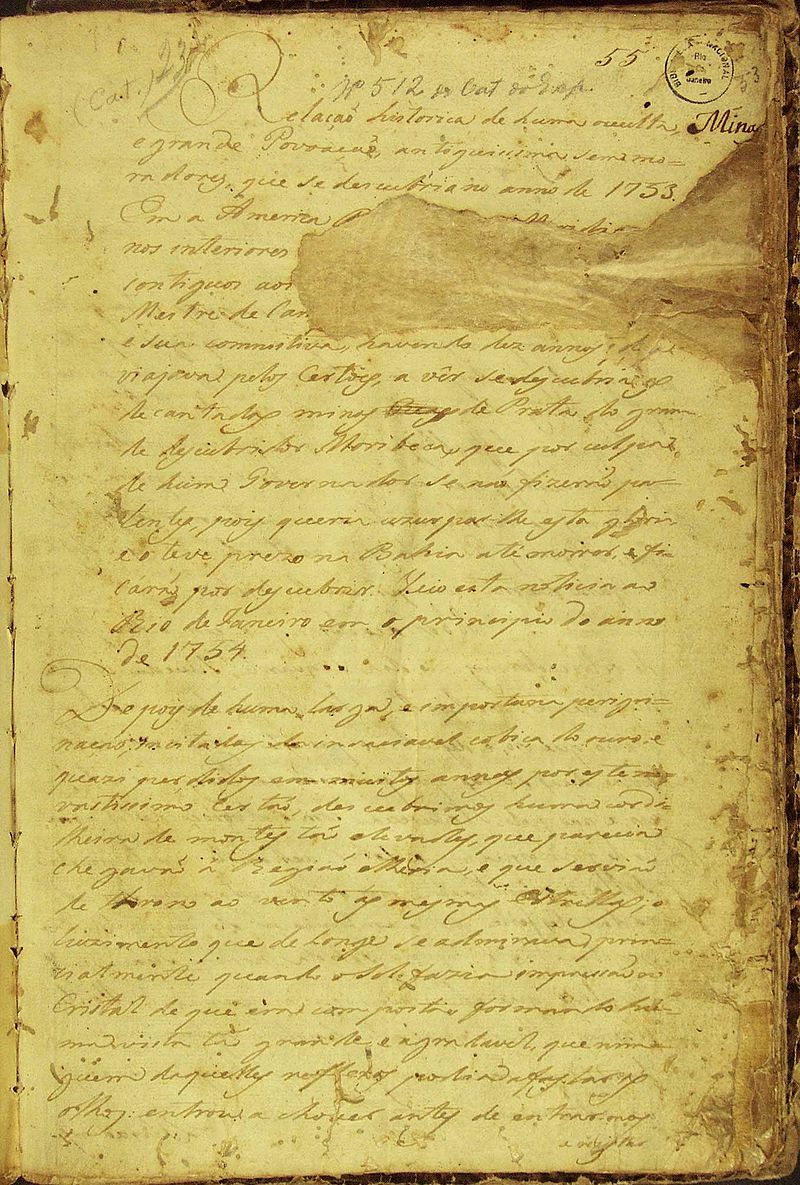 (Cat.) 23
55
BIBLIOTHECA NACIONAL
Rio de Janeiro
Nº 512 do Cat. da Exp.
Relação historica de huma occulta, Minas
e grande Povoação, antiquissima sem mo-
radores, que se descubrio no anno de 1753.
Em a America
nos interiores
contiguos aos
Mestre de Can
e sua comitiva, havendo dez annos, que
viajava pelos Certões, a vêr se descubria as
decantadas minas de Prata do gran-
de descubridor Moribeca, que por culpa
de hum Governador se não fizerão pa-
tentes, pois queria uzurparlhe esta gloria
e o teve prezo na Bahia até morrer, e fi-
carão por descubrir. Veio esta noticia ao
Rio de Janeiro em o principio do anno
de 1754.
Depois de huma larga, e importuna perigri-
nação, incitados da insaciavel cobiça do ouro, e
quazi perdidos em muitos annos por este
vastissimo Certão, descubrimos huma cordi-
lheira de montes tão elevados, que parecia
chegavão à Região etheria, e que servião
de throno ao vento às mesmas Estrellas; o
luzimento que de longe se admirava, prin-
cialmente quando o Sol fazia impressão ao
Cristal de que era composta, formando hu-
ma vista tão grande, e agradavel, que nin-
guem daquelles reflexos podia afastar os
olhos: entrou a chover antes de entrarmos